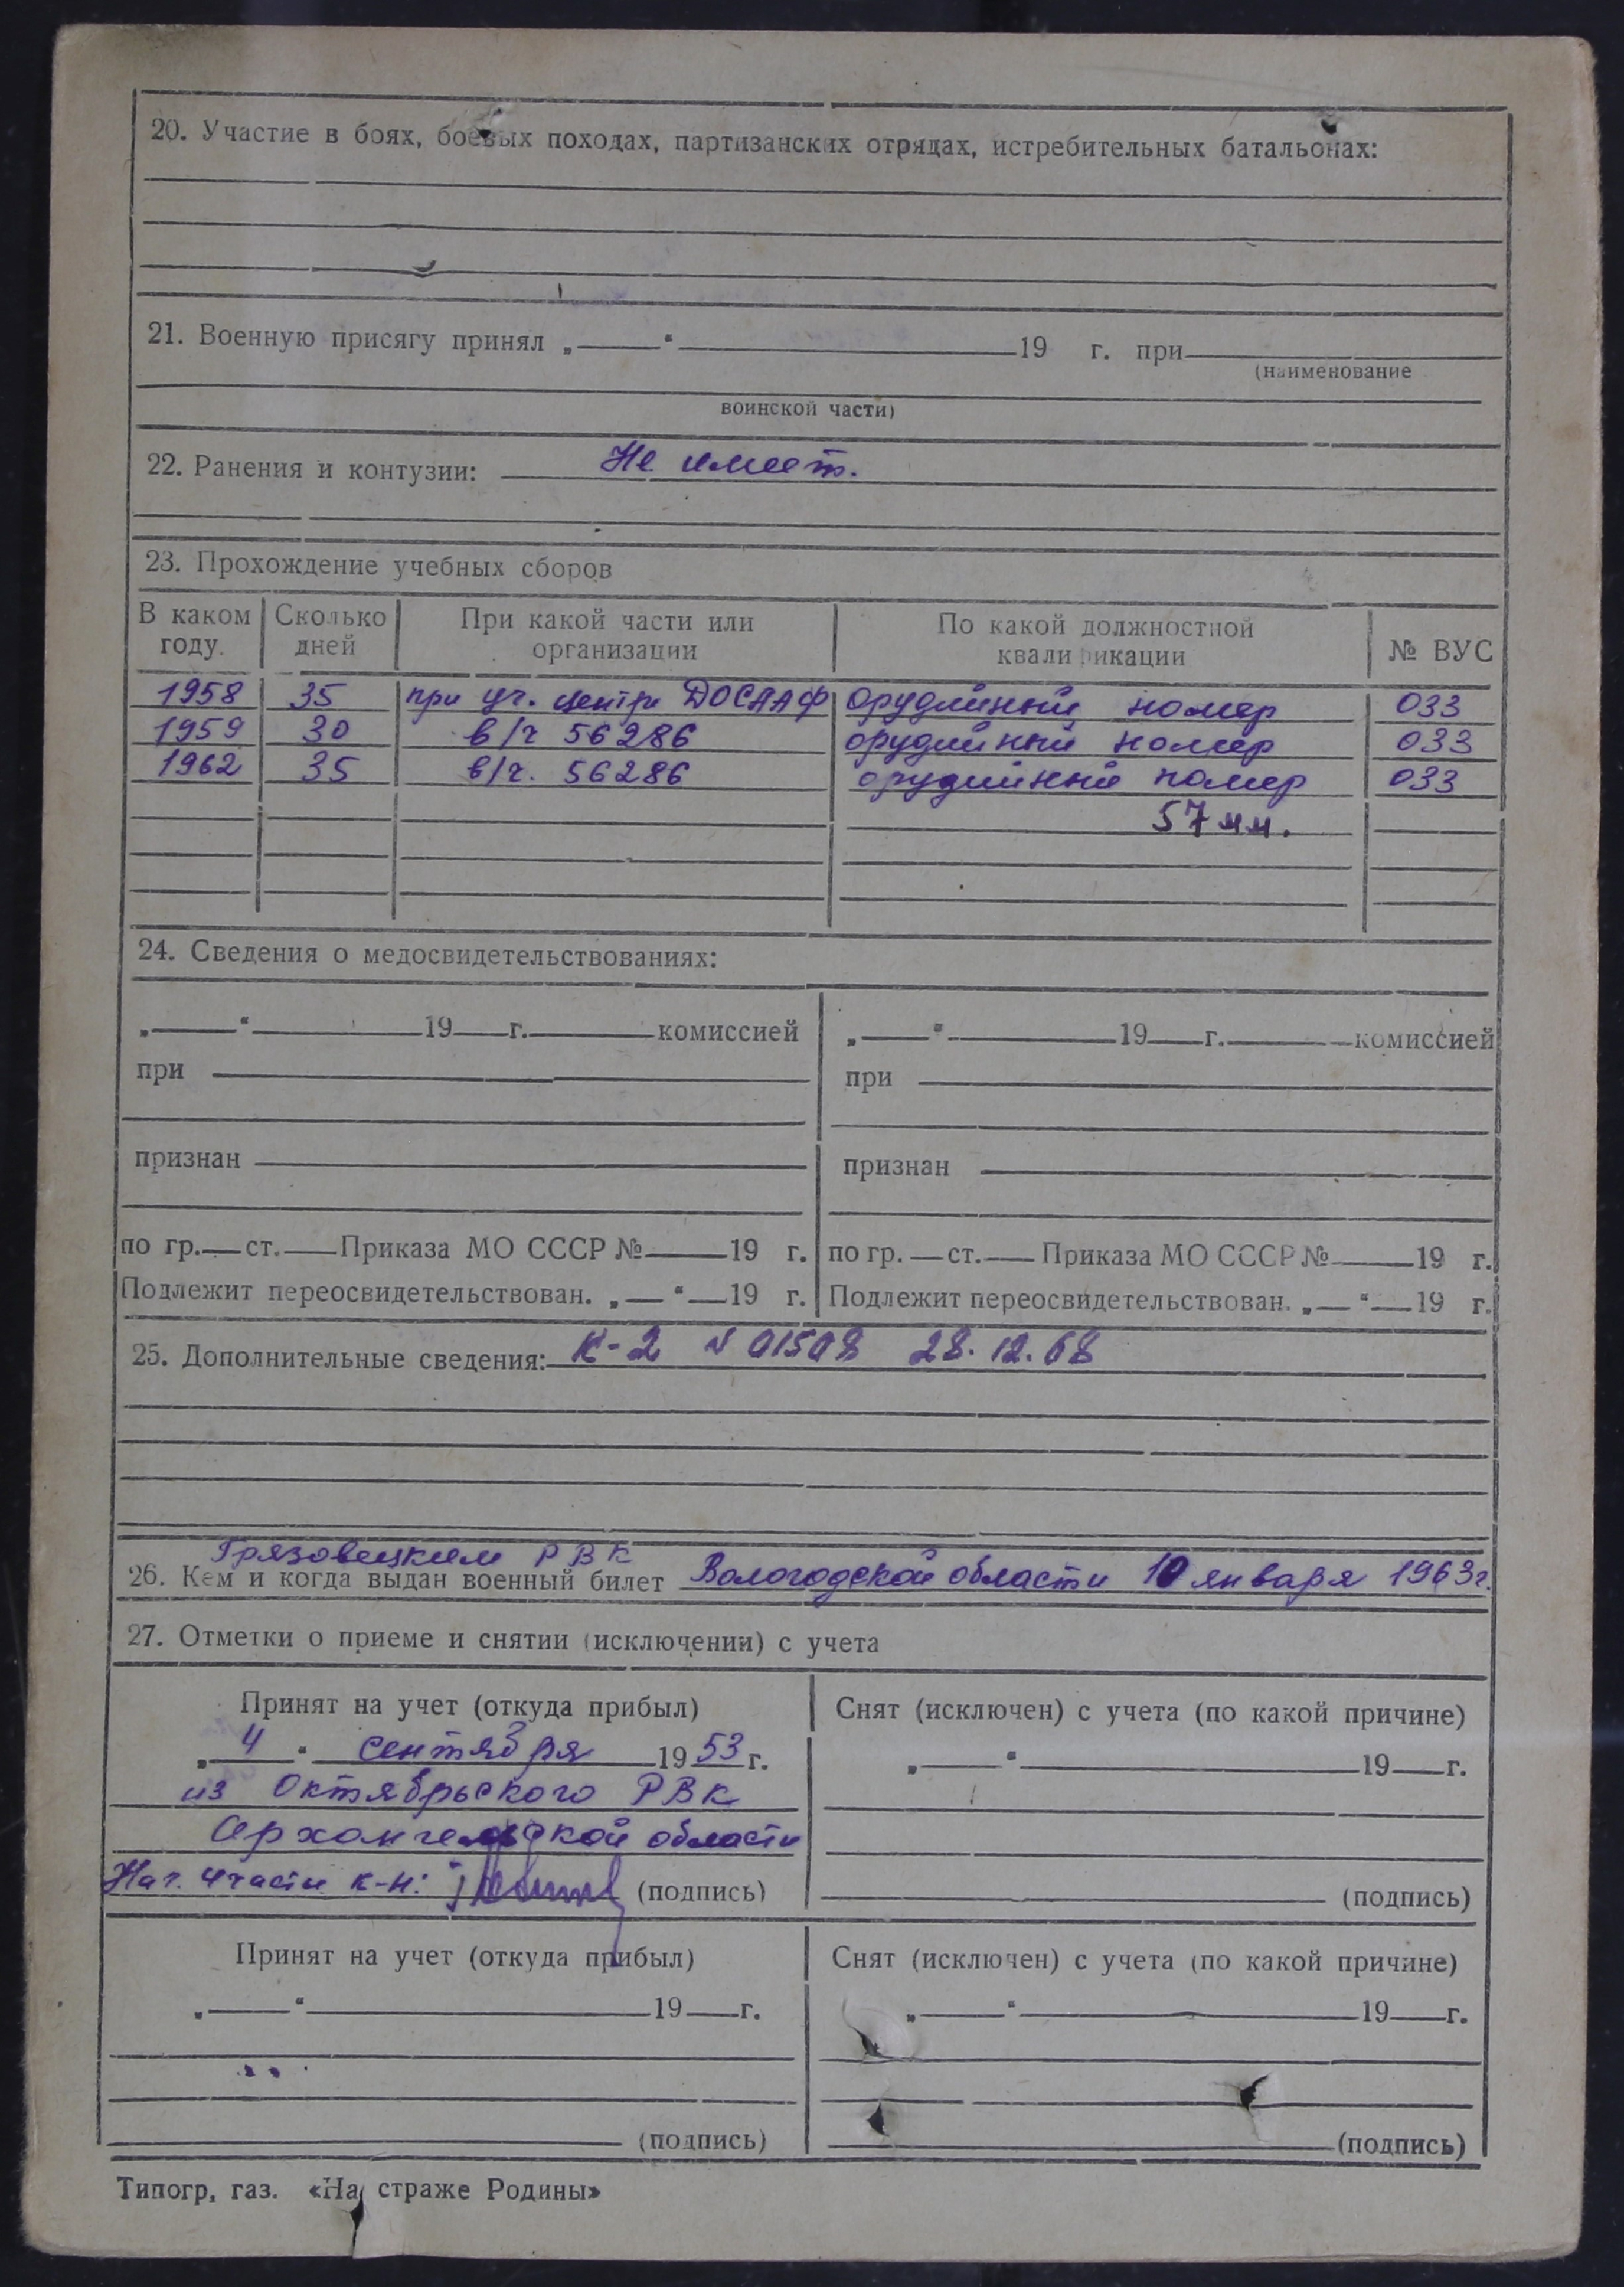 20. Участие в боях, боевых походах, партизанских отрядах, истребительных батальонах:
21. Военную присягу принял „ “ 19 г. при
(наименование
воинской части)
22. Ранения и контузии: Не имеет.
23. Прохождение учебных сборов
В каком году. Сколько дней При какой части или организации По какой должностной квалификации № ВУС
1958 35 при уч. центре ДОСААФ орудийный номер 033
1959 30 в/ч 56286 орудийный номер 033
1962 35 в/ч. 56286 орудийный номер 033
57 мм.
24. Сведения о медосвидетельствованиях:
„ “ 19 г. комиссией „ “ 19 г. комиссией
при при
признан признан
по гр. ст. Приказа МО СССР № 19 г. по гр. ст. Приказа МО СССР № 19 г.
Подлежит переосвидетельствован. „ “ 19 г. Подлежит переосвидетельствован. „ “ 19 г.
25. Дополнительные сведения: К-2 № 01508 28.12.68
Грязовецким РВК
26. Кем и когда выдан военный билет Вологодской области 10 января 1963г.
27. Отметки о приеме и снятии (исключении) с учета
Принят на учет (откуда прибыл) Снят (исключен) с учета (по какой причине)
„ 4 “ сентября 1953 г. „ “ 19 г.
из Октябрьского РВК
Архангельской области
Нач. 4 части к-н: (подпись) (подпись)
Принят на учет (откуда прибыл) Снят (исключен) с учета (по какой причине)
„ “ 19 г. „ “ 19 г.
(подпись) (подпись)
Типогр, газ. «На страже Родины»